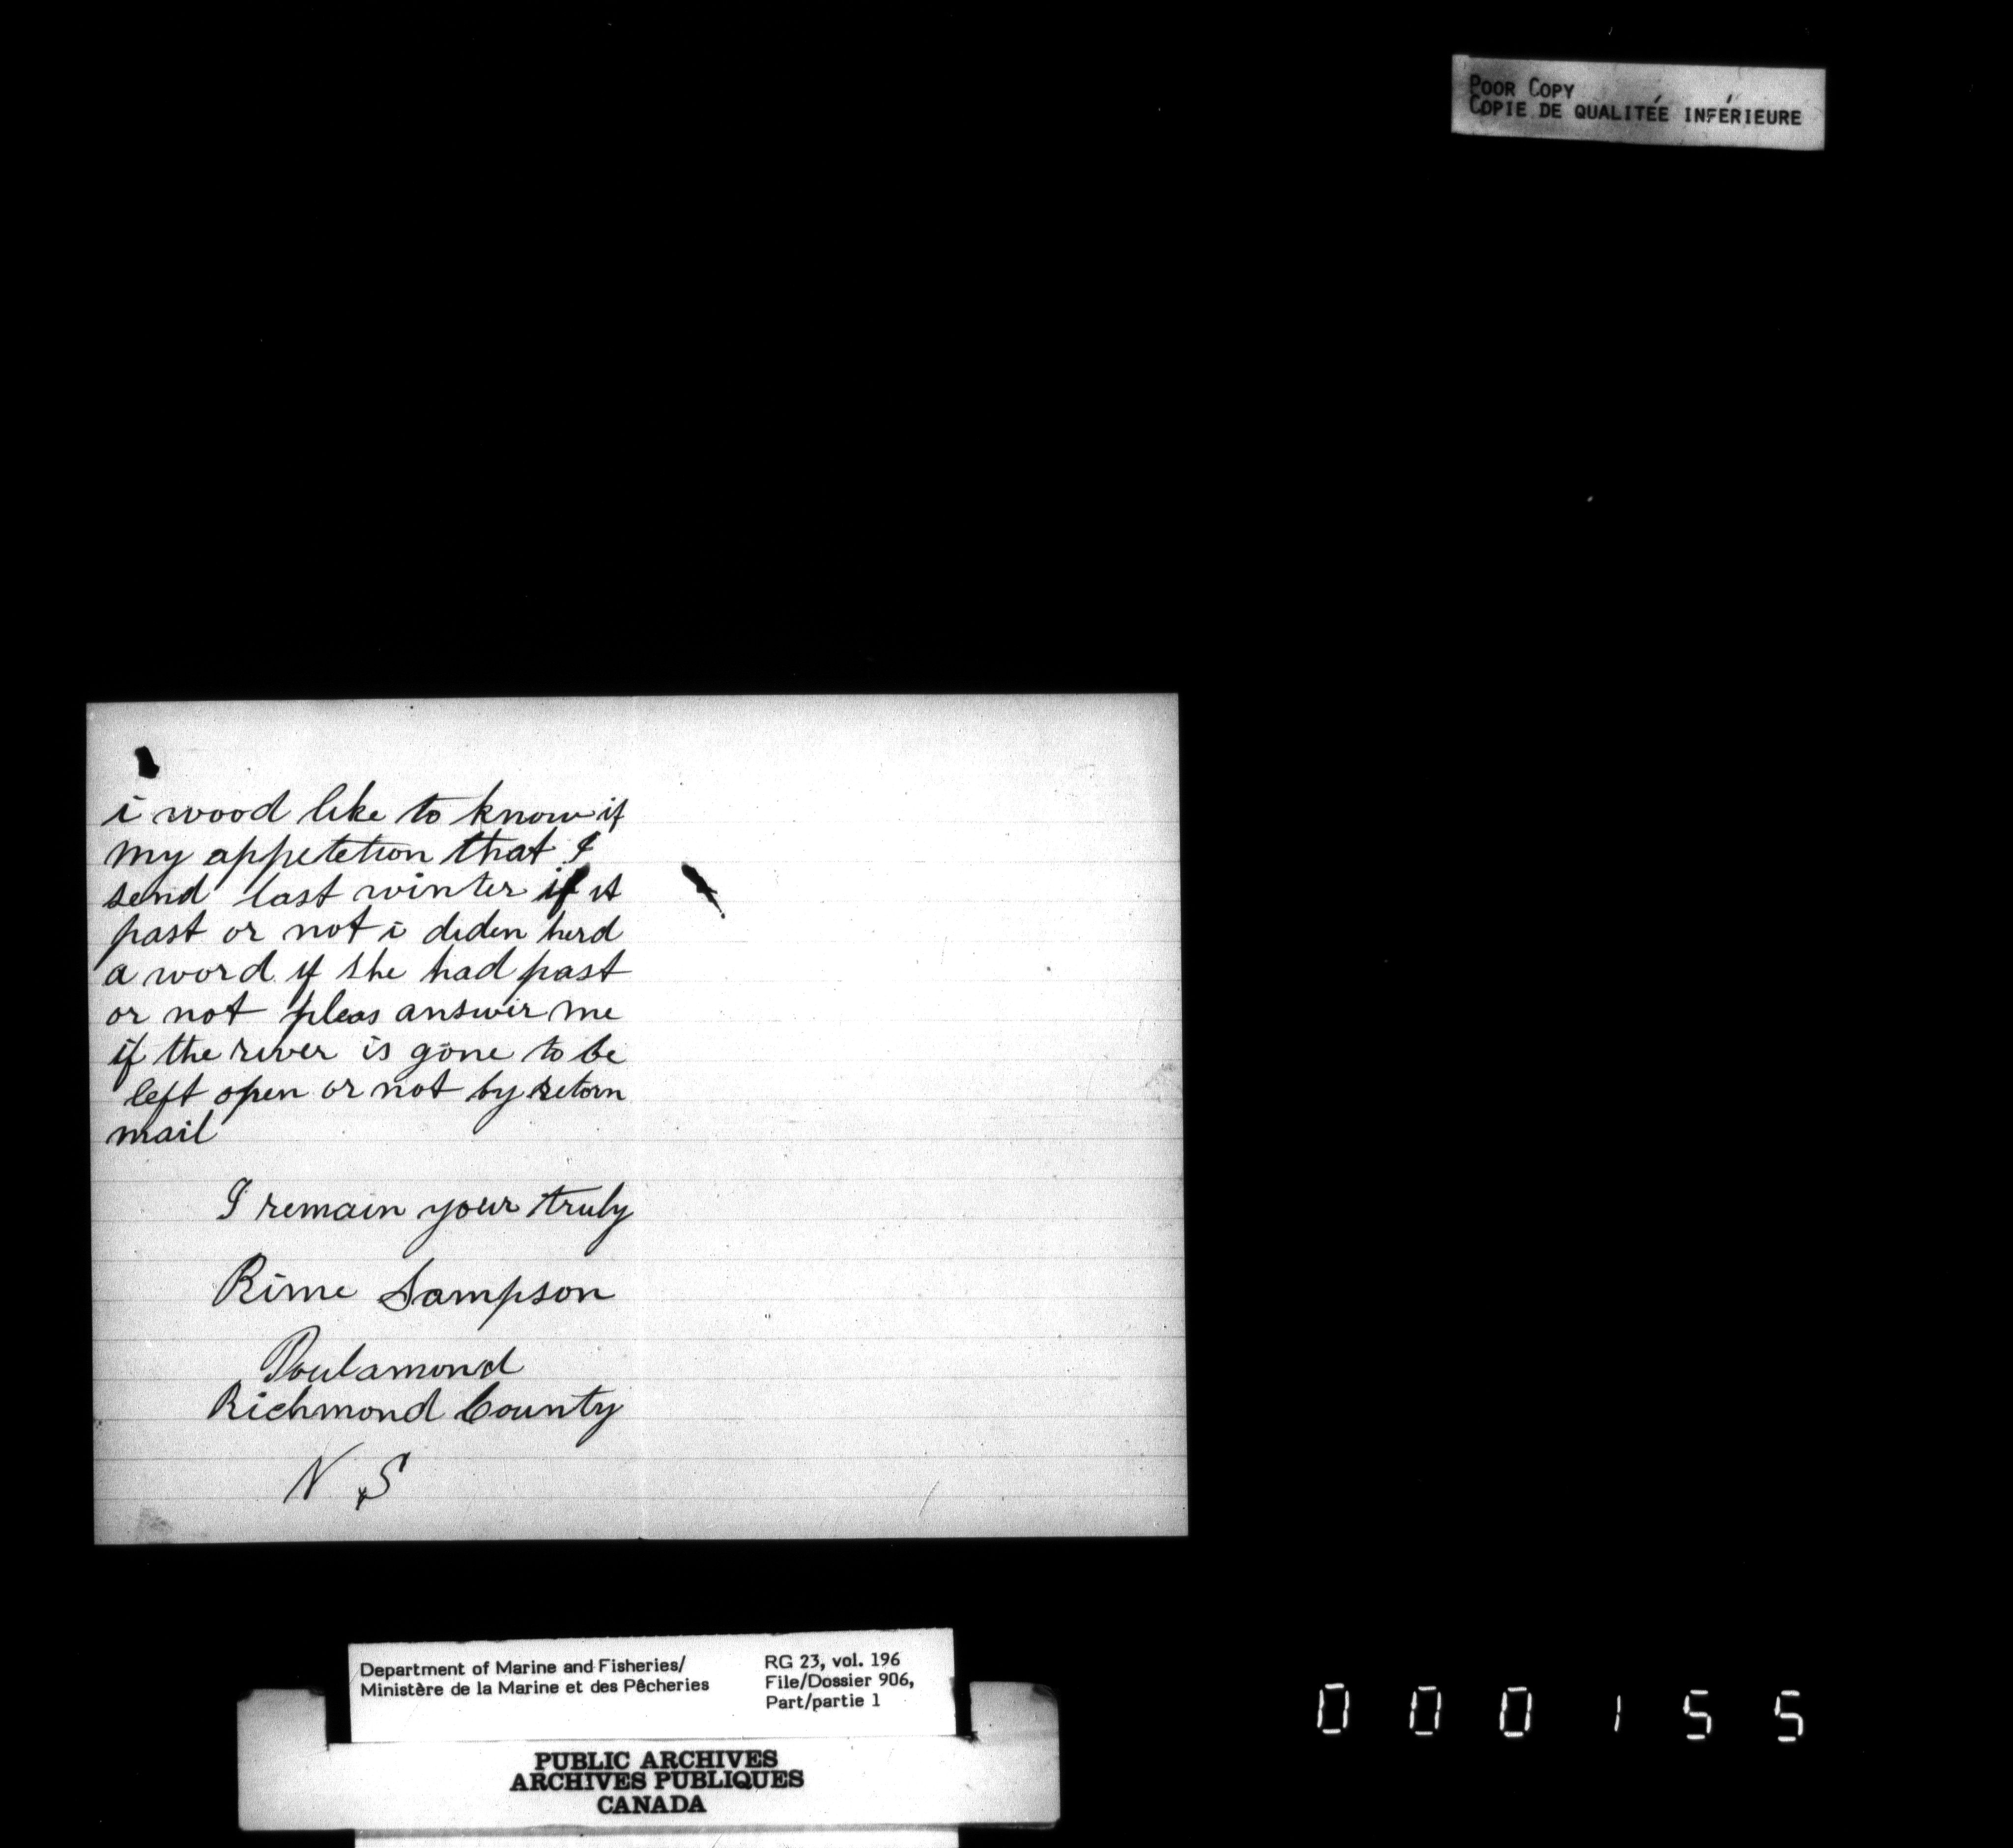 POOR COPY
COPIE DE QUALITÉE INFÉRIEURE
i wood like to know if
my appetetion that I
send last winter if it
past or not i diden herd
a word if she had past
or not pleas answer me
if the river is gone to be
left open or not by retorn
mail
I remain your truly
Rime Sampson
Poulamond
Richmond County
N.S
Department of Marine and Fisheries/
Ministère de la Marine et des Pêcheries
RG 23, vol. 196
File/Dossier 906,
Part/partie 1
PUBLIC ARCHIVES
ARCHIVES PUBLIQUES
CANADA
000155